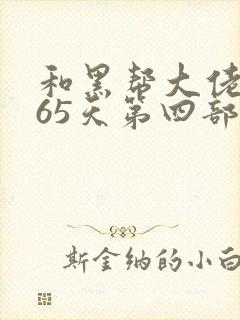 和黑帮大佬
65天第四部
斯金纳的小白